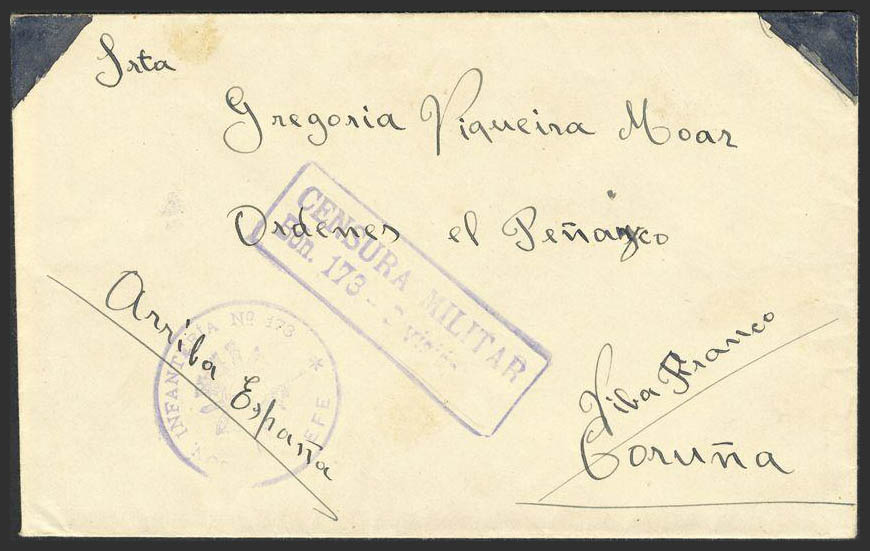 Srta
Gregoria Viqueira Moar
Ordenes el Peñazco
CENSURA MILITAR
Bon. 173
Arriba España
INFANTERIA Nº 173 *
Viba Franco
Coruña